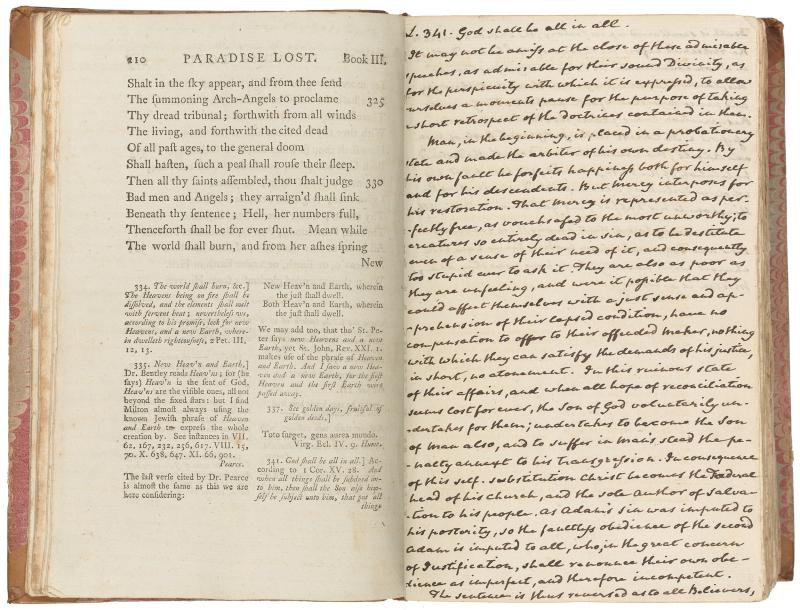 210 PARADISE LOST. Book III.
Shalt in the ſky appear, and from thee ſend
The ſummoning Arch-Angels to proclame 325
Thy dread tribunal; forthwith from all winds
The living, and forthwith the cited dead
Of all paſt ages, to the general doom
Shall haſten, ſuch a peal ſhall rouſe their ſleep.
Then all thy ſaints aſſembled, thou ſhalt judge 330
Bad men and Angels; they arraign'd ſhall ſink
Beneath thy ſentence; Hell, her numbers full,
Thenceforth ſhall be for ever ſhut. Mean while
The world ſhall burn, and from her aſhes ſpring
New
334. The world ſhall burn, &c.]
The Heavens being on fire ſhall be
diſſolved, and the elements ſhall melt
with fervent heat; nevertheleſs we,
according to his promiſe, look for new
Heavens, and a new Earth, where-
in dwelleth righteouſneſs, 2 Pet. III.
12, 13.
335. New Heav'n and Earth,]
Dr. Bentley reads Heav'ns; for (he
ſays) Heav'n is the ſeat of God,
Heav'ns are the viſible ones, all not
beyond the fixed ſtars: but I find
Milton almoſt always uſing the
known Jewiſh phraſe of Heaven
and Earth to expreſs the whole
creation by. See inſtances in VII.
62, 167, 232, 256, 617. VIII. 15,
70. X. 638, 647. XI. 66, 901.
Pearce.
The laſt verſe cited by Dr. Pearce
is almoſt the ſame as this we are
here conſidering:
New Heav'n and Earth, wherein
the juſt ſhall dwell.
Both Heav'n and Earth, wherein
the juſt ſhall dwell.
We may add too, that tho' St. Pe-
ter ſays new Heavens and a new
Earth, yet St. John, Rev. XXI. 1.
makes uſe of the phraſe of Heaven
and Earth. And I ſaw a new Hea-
ven and a new Earth, for the firſt
Heaven and the firſt Earth were
paſſed away.
337. See golden days, fruitful of
golden deeds,]
Toto ſurget gens aurea mundo.
Virg. Ecl. IV. 9. Hume.
341. God ſhall be all in all.] Ac-
cording to 1 Cor. XV. 28. And
when all things ſhall be ſubdued un-
to him, then ſhall the Son alſo him-
ſelf be ſubject unto him, that put all
things
L. 341. God shall be all in all.
It may not be amiss at the close of these admirable
speeches, as admirable for their sound Divinity, as
for the perspicuity with which it is expressed, to allow
ourselves a moments pause for the purpose of taking
a short retrospect of the doctrines contained in them.
Man, in the beginning, is placed in a probationary
state and made the arbiter of his own destiny. By
his own fault he forfeits happiness both for himself
and for his descendents. But Mercy interposes for
his restoration. That Mercy is represented as per-
-fectly free, as vouchsafed to the most unworthy; to
creatures so entirely dead in sin, as to be destitute
even of a sense of their need of it, and consequently
too stupid ever to ask it. They are also as poor as
they are unfeeling, and were it possible that they
could affect themselves with a just sense and ap-
-prehension of their lapsed condition, have no
compensation to offer to their offended Maker, nothing
with which they can satisfy the demands of his justice,
in short, no atonement. In this ruinous state
of their affairs, and when all hope of reconciliation
seems lost for ever, the Son of God voluntarily un-
-dertakes for them; undertakes to become the Son
of Man also, and to suffer in man's stead the pe-
-nalty annext to his transgression. In consequence
of this self-substitution Christ becomes the Federal
head of his church, and the sole Author of Salva-
-tion to his people. As Adam's sin was imputed to
his posterity, so the faultless obedience of the second
Adam is imputed to all, who, in the great concern
of Justification, shall renounce their own obe-
-dience as imperfect, and therefore incompetent.
The sentence is thus reversed as to all Believers,